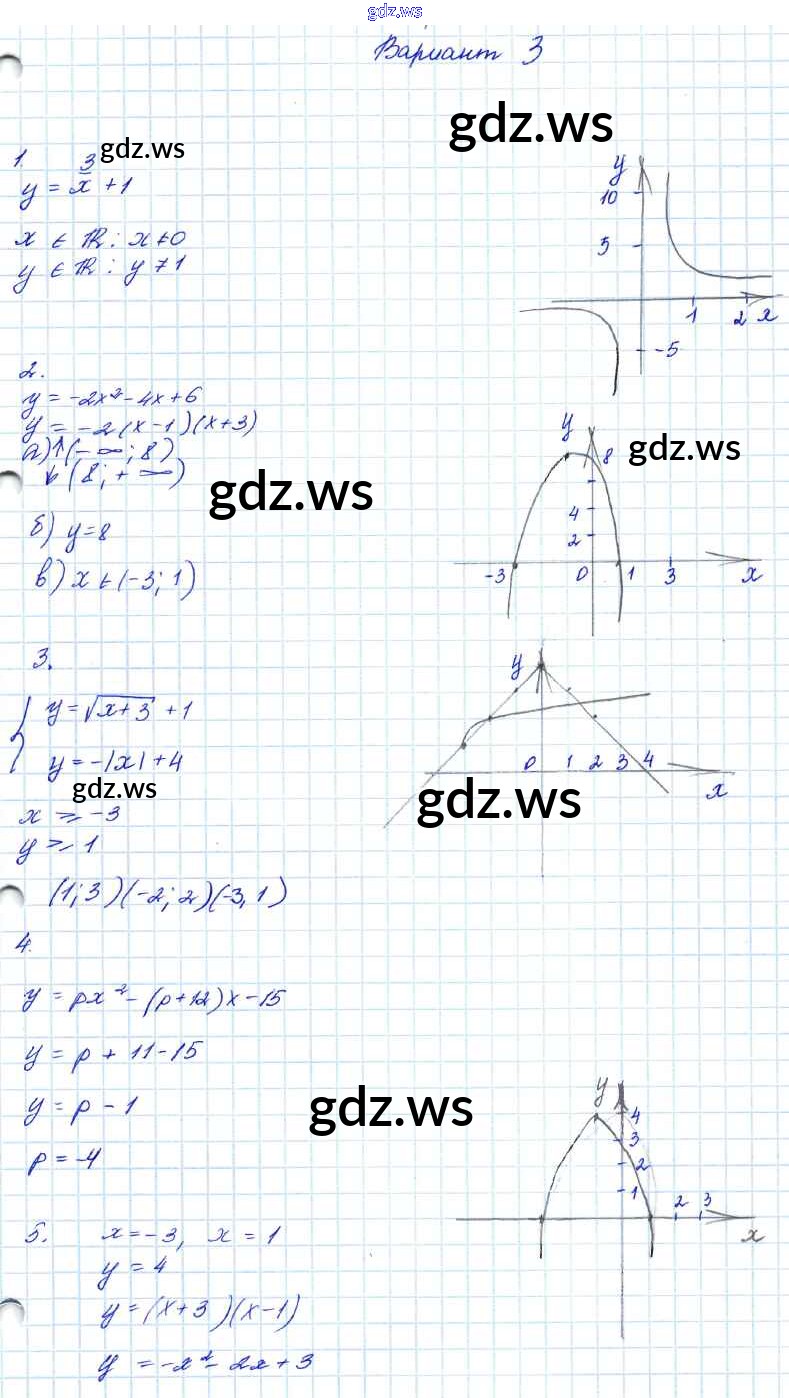 gdz.ws
Вариант 3
gdz.ws
1.
gdz.ws
y = 3/x + 1
x ∈ ℝ : x ≠ 0
y ∈ ℝ : y ≠ 1
y
10
5
1 2 x
-5
2.
y = -2x² - 4x + 6
y = -2(x-1)(x+3)
а) ↑ (-∞; 8)
↓ (8; +∞)
gdz.ws
б) y = 8
в) x ∈ (-3; 1)
y
8
gdz.ws
4
2
-3 0 1 3 x
3.
{ y = √(x+3) + 1
y = -|x| + 4
gdz.ws
x ≥ -3
y ≥ 1
(1; 3) (-2; 2) (-3, 1)
y
0 1 2 3 4
x
gdz.ws
4.
y = px² - (p+12)x - 15
y = p + 11 - 15
y = p - 1
p = -4
gdz.ws
y
4
3
2
1
2 3
x
5. x = -3, x = 1
y = 4
y = (x+3)(x-1)
y = -x² - 2x + 3